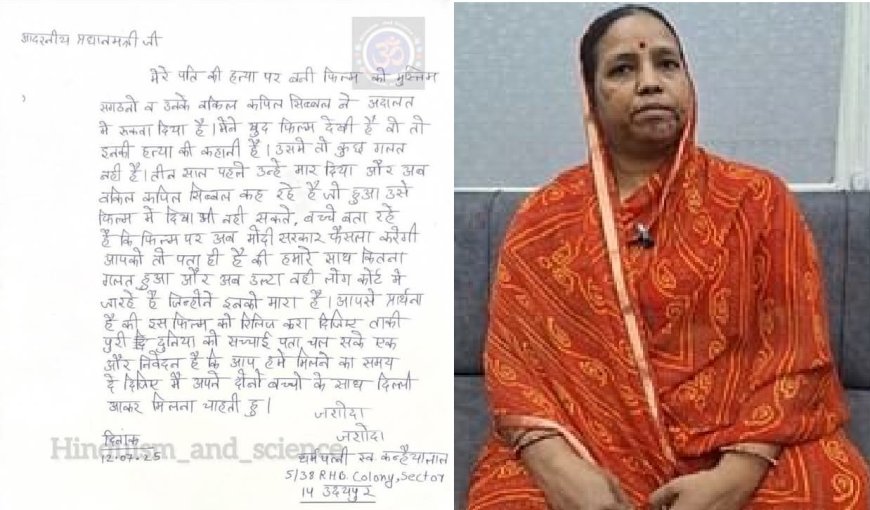 आदरनीय प्रधानमंत्री जी
मेरे पति की हत्या पर बनी फिल्म को मुस्लिम
सगठनो व उनके वकिल कपिल सिब्बल ने अदालत
मे रुकवा दिया है। मैने खुद फिल्म देखी है वो तो
इनकी हत्या की कहानी है। उसमे तो कुछ गलत
नही है। तीन साल पहले उन्हे मार दिया और अब
वकिल कपिल सिब्बल कह रहे है जो हुआ उसे
फिल्म मे दिखा भी नही सकते, बच्चे बता रहे
है कि फिल्म पर अब मोदी सरकार फैसला करेगी
आपको तो पता ही है की हमारे साथ कितना
गलत हुआ और अब उल्टा वही लोग कोर्ट मे
जारहे है जिन्होने इनको मारा है। आपसे प्रार्थना
है की इस फिल्म को रिलिज करा दिजिए ताकी
पुरी दुनिया को सच्चाई पता चल सके एक
और निवेदन है कि आप हमे मिलने का समय
दे दिजिए मै अपने दोनो बच्चो के साथ दिल्ली
आकर मिलना चाहती हु।
जशोदा
दिनांक
जशोदा
12-07-25
धर्मपत्नी स्व कन्हैयालाल
5/38 RHB Colony, Sector
14 उदयपुर
Hinduism_and_science